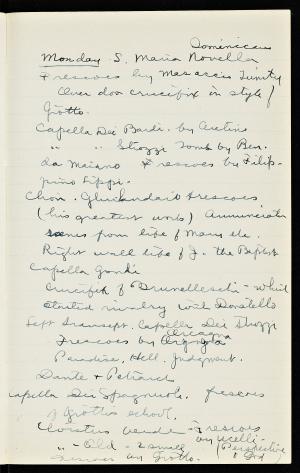 Dominican
Monday S. Maria Novella
Frescoes by Masaccio Trinity
Over door crucifix in style of
Giotto.
Capella Dei Bardi. by Aretino
" " Strozzi Tomb by Ben.
da Maiano Frescoes by Filip-
pino Lippi.
Choir. Ghirlandaio frescoes.
(his greatest work) Annunciata
scenes from life of Mary etc.
Right wall life of J. the Baptist
Capella Gondi
Crucifix of Brunelleschi - which
started rivalry with Donatello
Left Transept. Capella Dei Strozzi
Orcagna
Frescoes by
Paradise, Hell, Judgment.
Dante & Petrarch
Capella Dei Spagnuoli. frescoes
of Giotto's school.
Cloister verde - Frescoes
by Ucelli -
" - Old - small (Perspective
Scenes by Giotto.